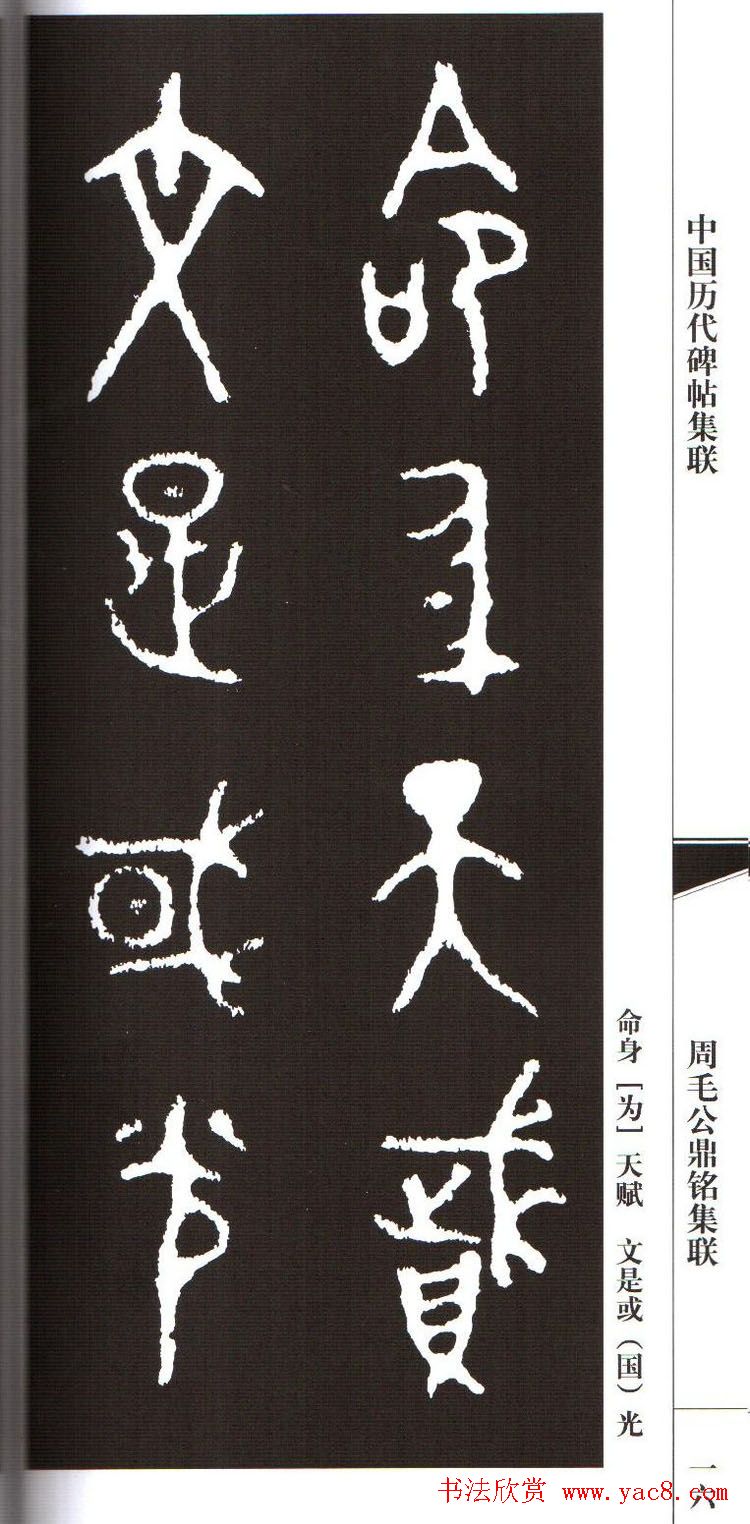 中国历代碑帖集联
周毛公鼎铭集联
一六
命身［为］天赋　文是或（国）光
命身天賦
文是或光
书法欣赏 www.yac8.com